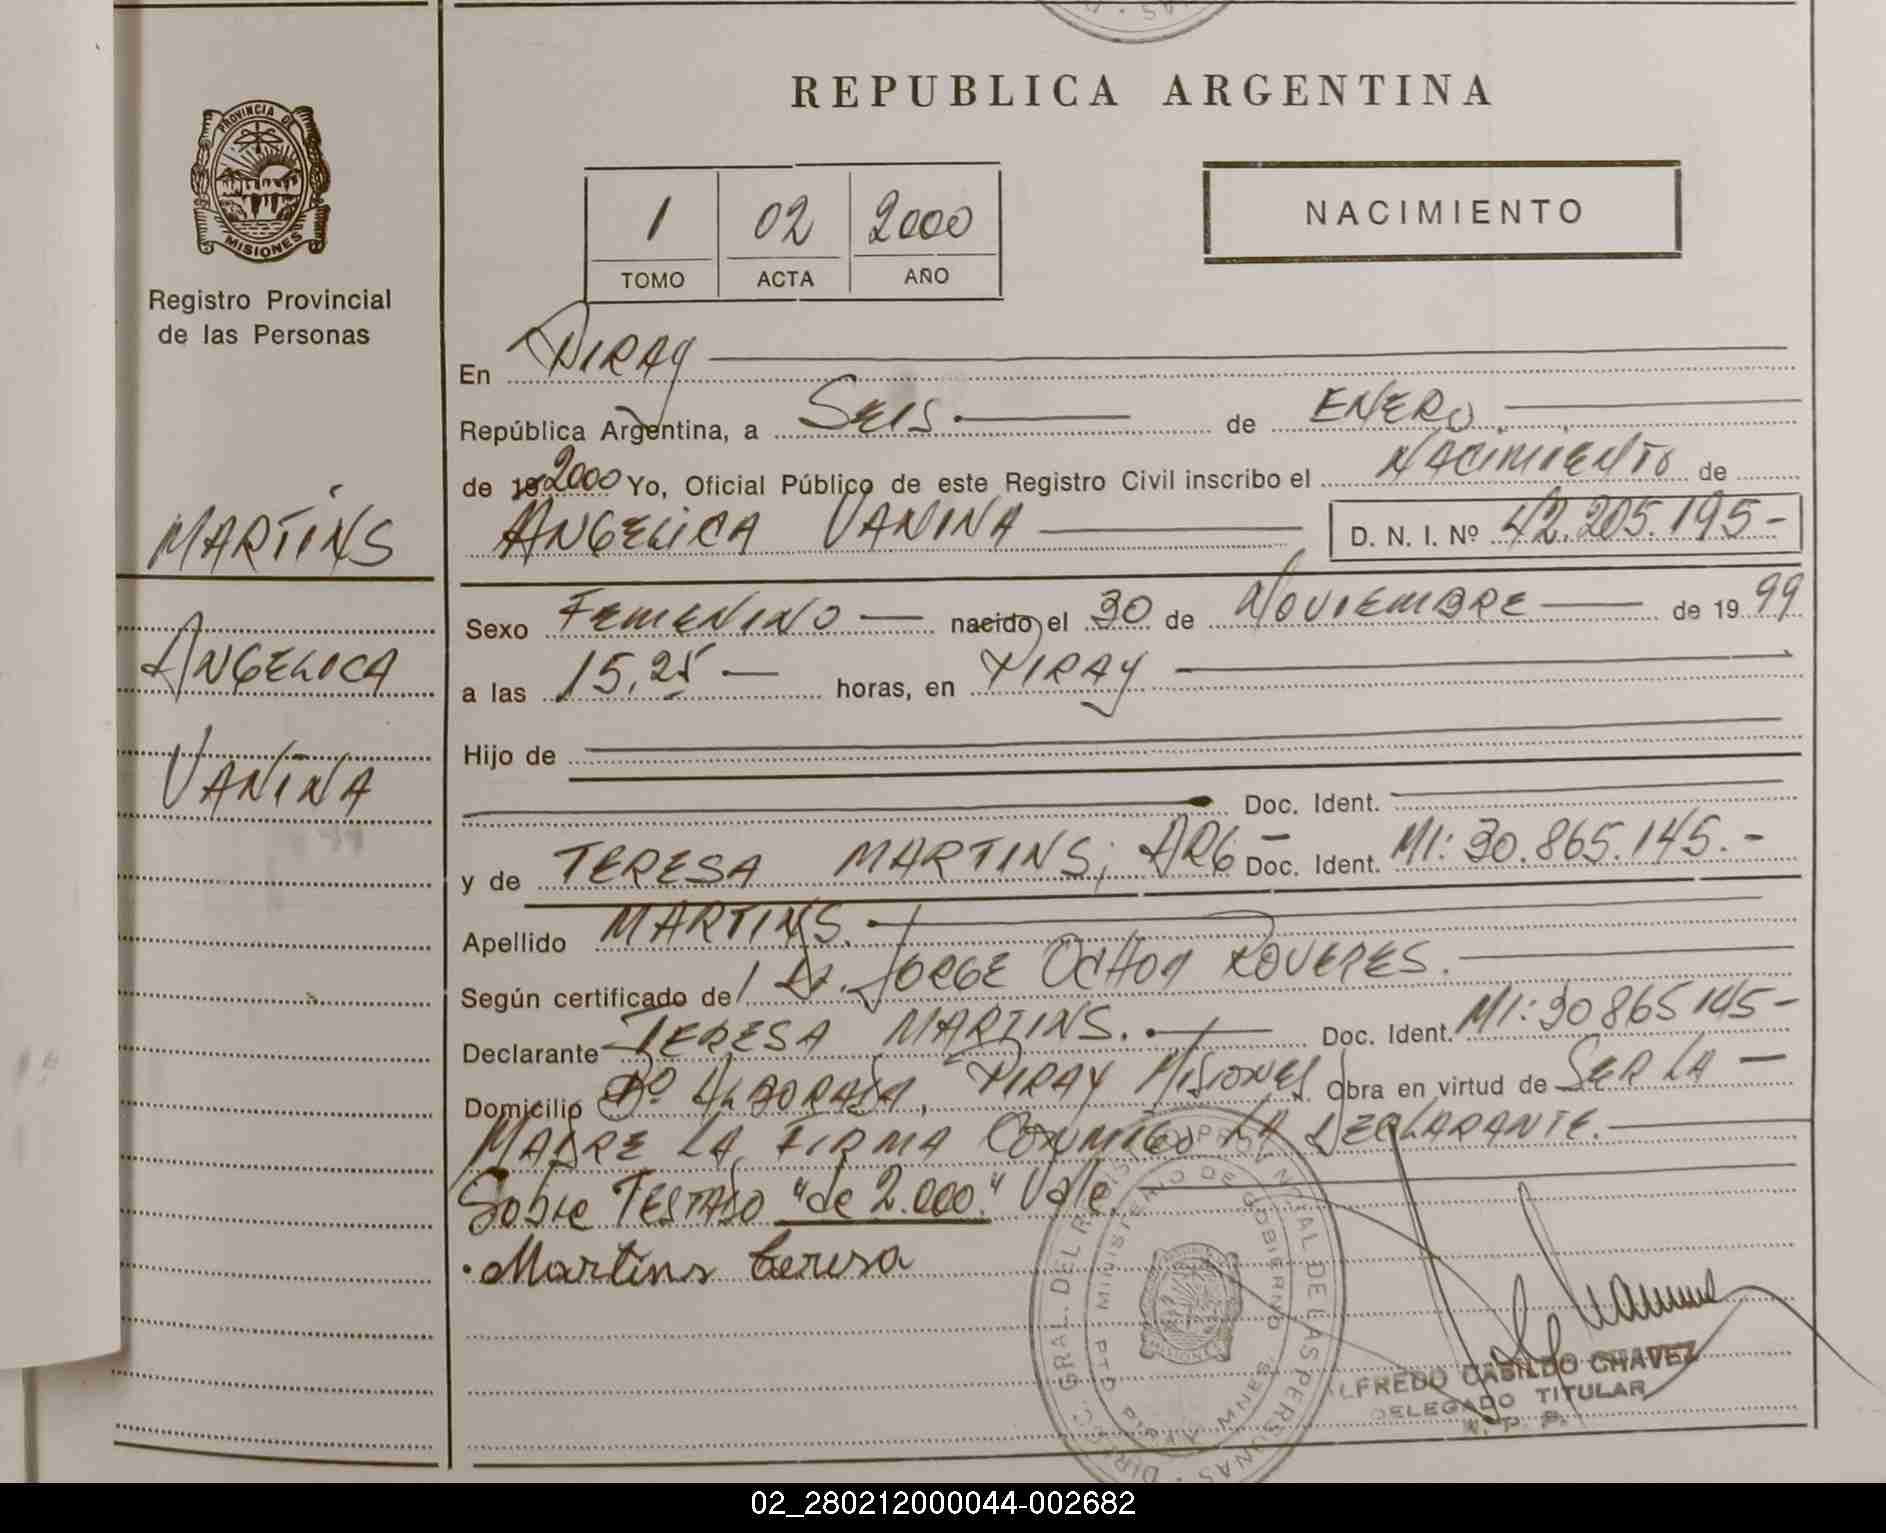 REPUBLICA ARGENTINA
PROVINCIA DE
MISIONES
Registro Provincial
de las Personas
1 02 2000
TOMO ACTA AÑO
NACIMIENTO
MARTINS
ANGELICA
VANINA
En PIRAY
República Argentina, a SEIS. de ENERO
de 19 2000 Yo, Oficial Público de este Registro Civil inscribo el NACIMIENTO de
ANGELICA VANINA D. N. I. Nº 42.205.195-
Sexo FEMENINO nacido el 30 de NOVIEMBRE de 19 99
a las 15,25 horas, en PIRAY
Hijo de
Doc. Ident.
y de TERESA MARTINS; ARG- Doc. Ident. MI: 30.865.145.-
Apellido MARTINS.
Según certificado de JORGE OCHOA ROVERES.
Declarante TERESA MARTINS. Doc. Ident. MI: 30865145-
Domicilio Bº PIRAY MISIONES Obra en virtud de SER LA
MADRE LA FIRMA CONMIGO LA DECLARANTE.
Sobre TESTADO "de 2.000." Vale
Martins teresa
DIRECC. GRAL. DEL REGISTRO PROVINCIAL DE LAS PERSONAS
MINISTERIO DE GOBIERNO
MISIONES
PTO PIRAY MNES
LFREDO CASILDO CHAVEZ
DELEGADO TITULAR
R. P. P.
02_280212000044-002682